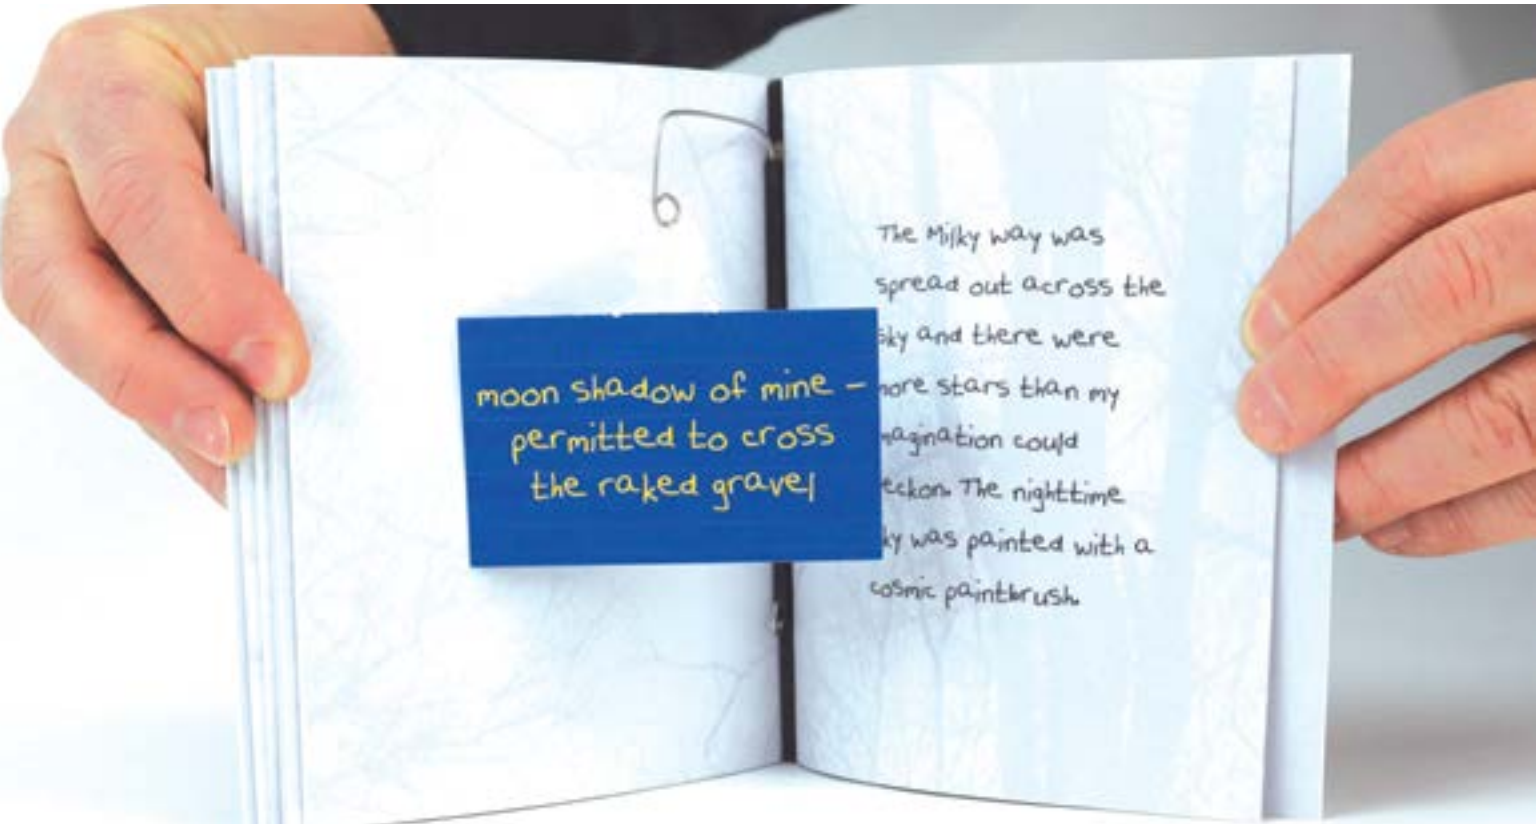 moon shadow of mine –
permitted to cross
the raked gravel
The Milky way was
spread out across the
sky and there were
more stars than my
imagination could
reckon. The nighttime
sky was painted with a
cosmic paintbrush.